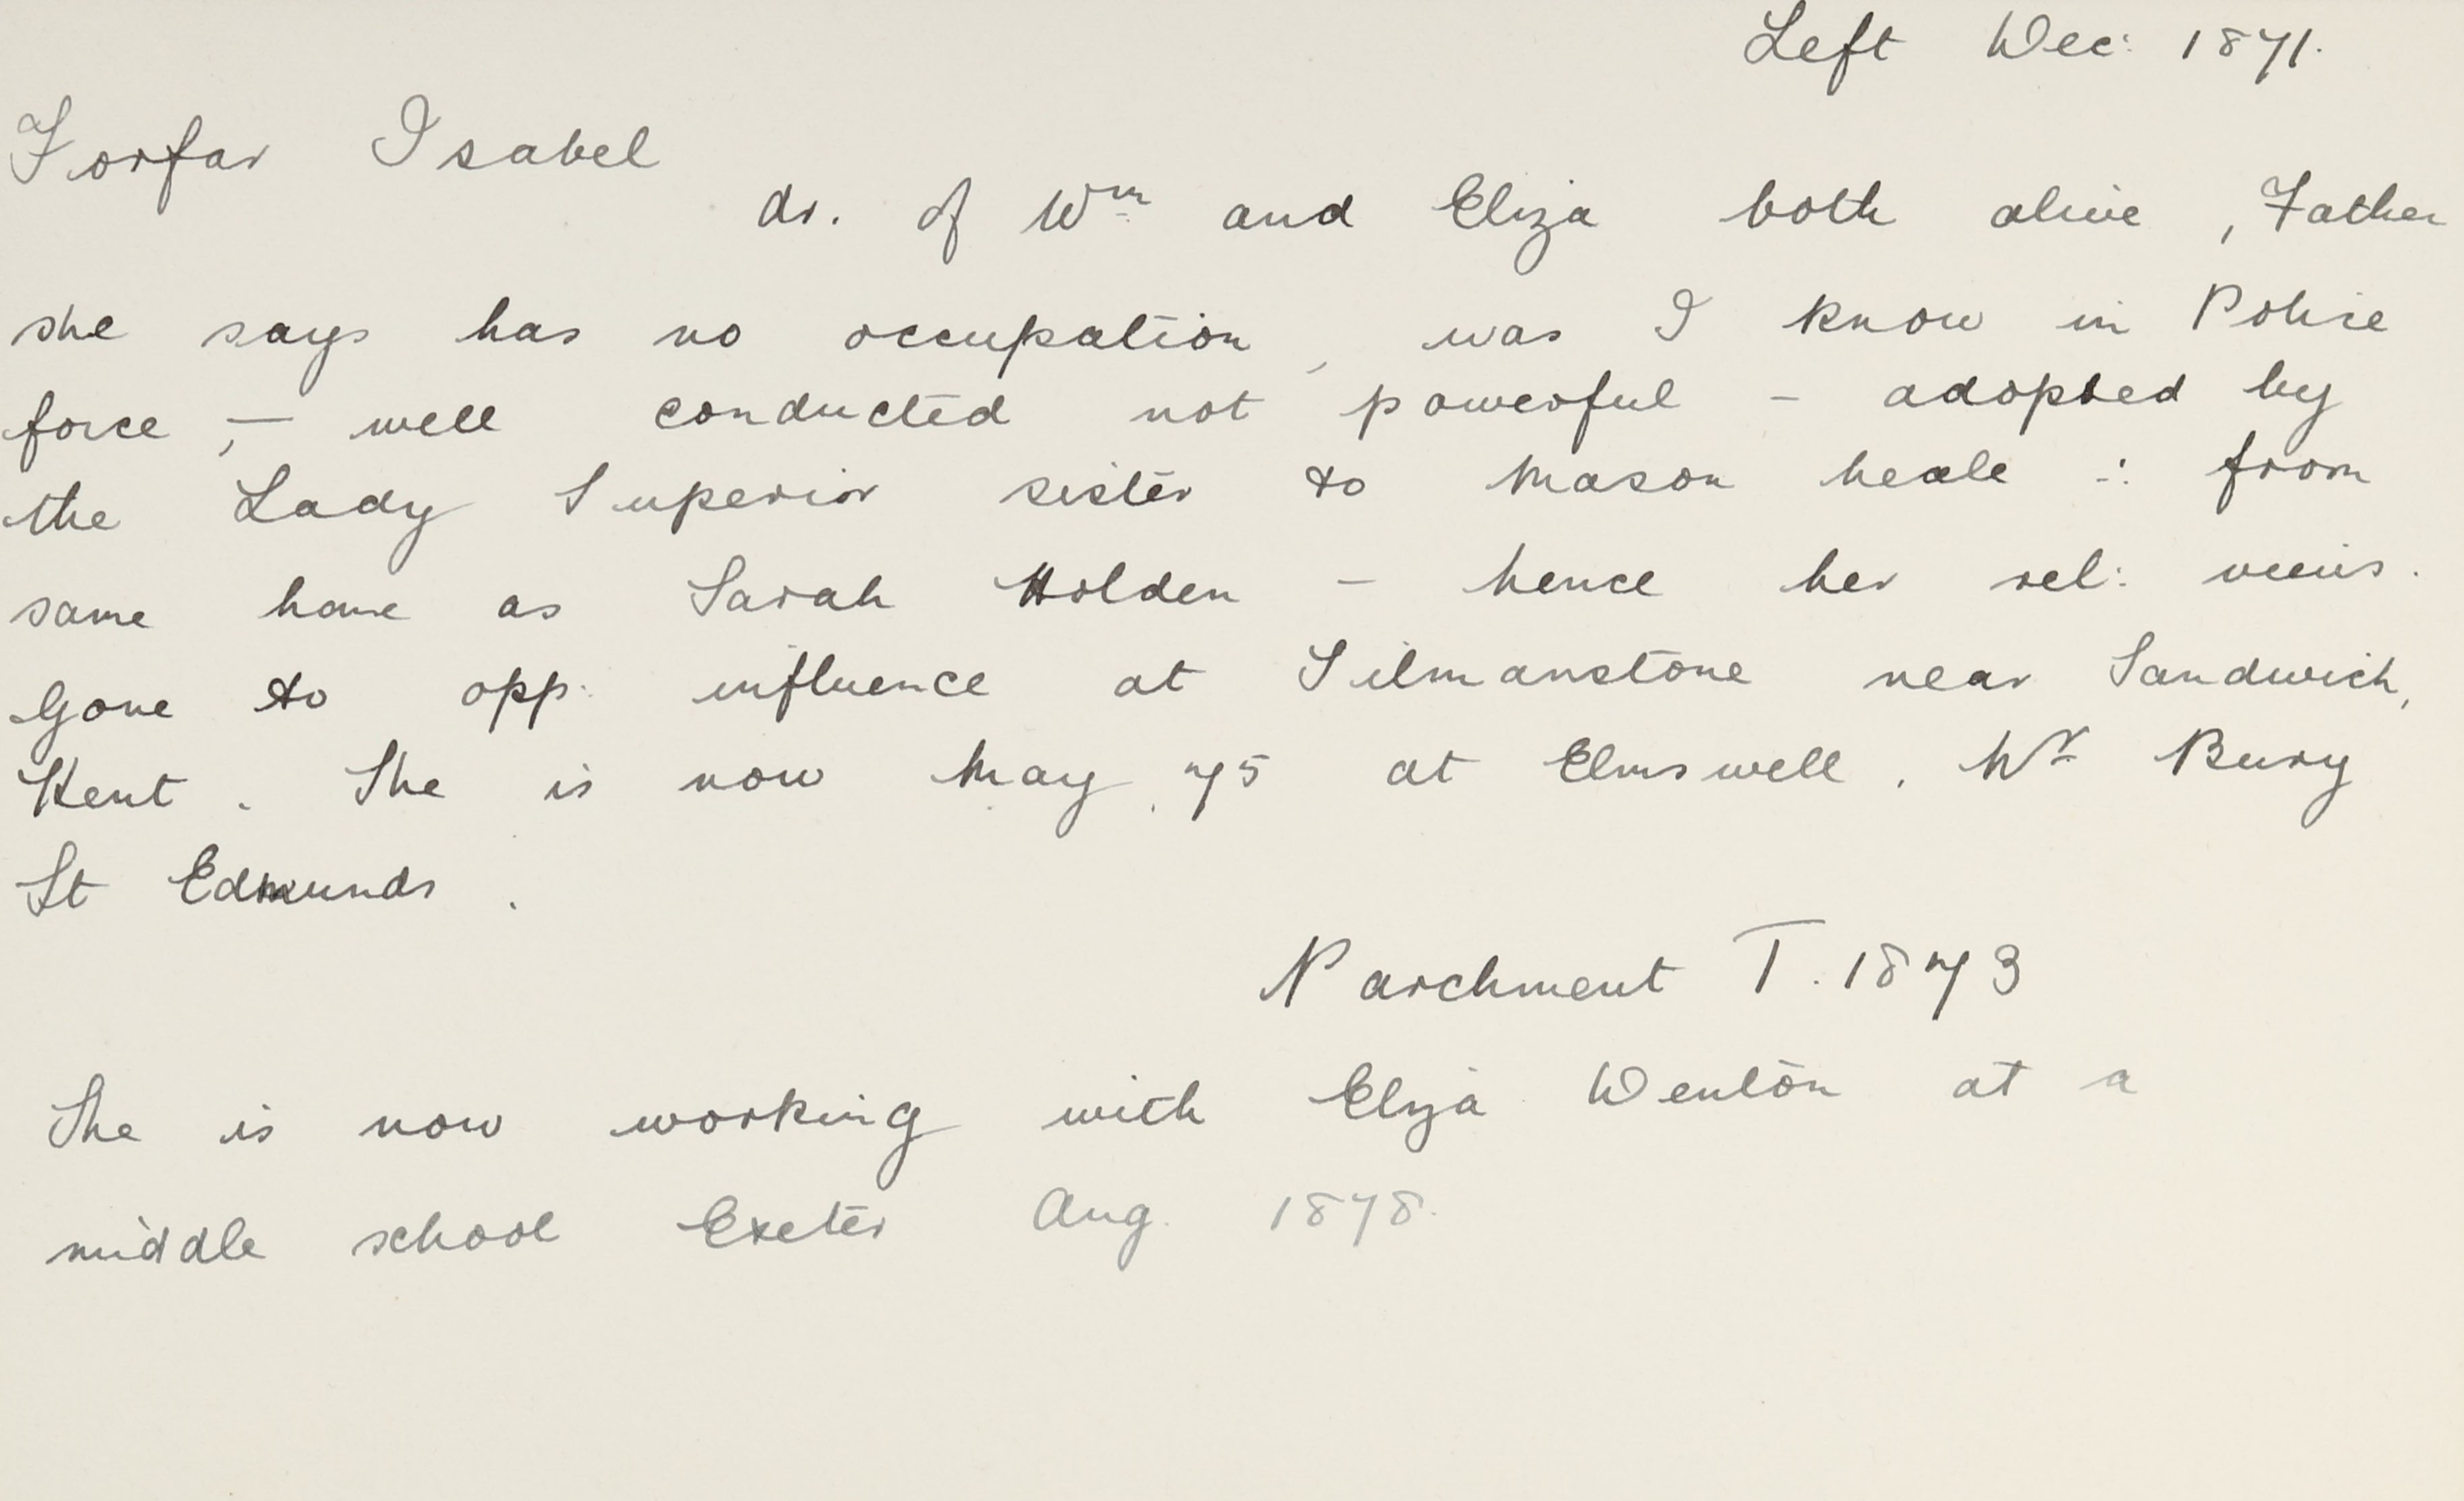 Left Dec: 1871.
Forfar Isabel
dr. of Wm and Eliza both alive, Father
she says has no occupation, was I know in Police
force, – well conducted not powerful – adopted by
the Lady Superior sister to Mason heale ∴ from
same home as Sarah Holden – hence her rel: views.
Gone to opp: influence at Tilmanstone near Sandwich,
Kent. She is now May 75 at Elmswell, Nr Bury
St Edmunds.
Parchment T. 1873
She is now working with Eliza Denton at a
middle school Exeter Aug. 1878.